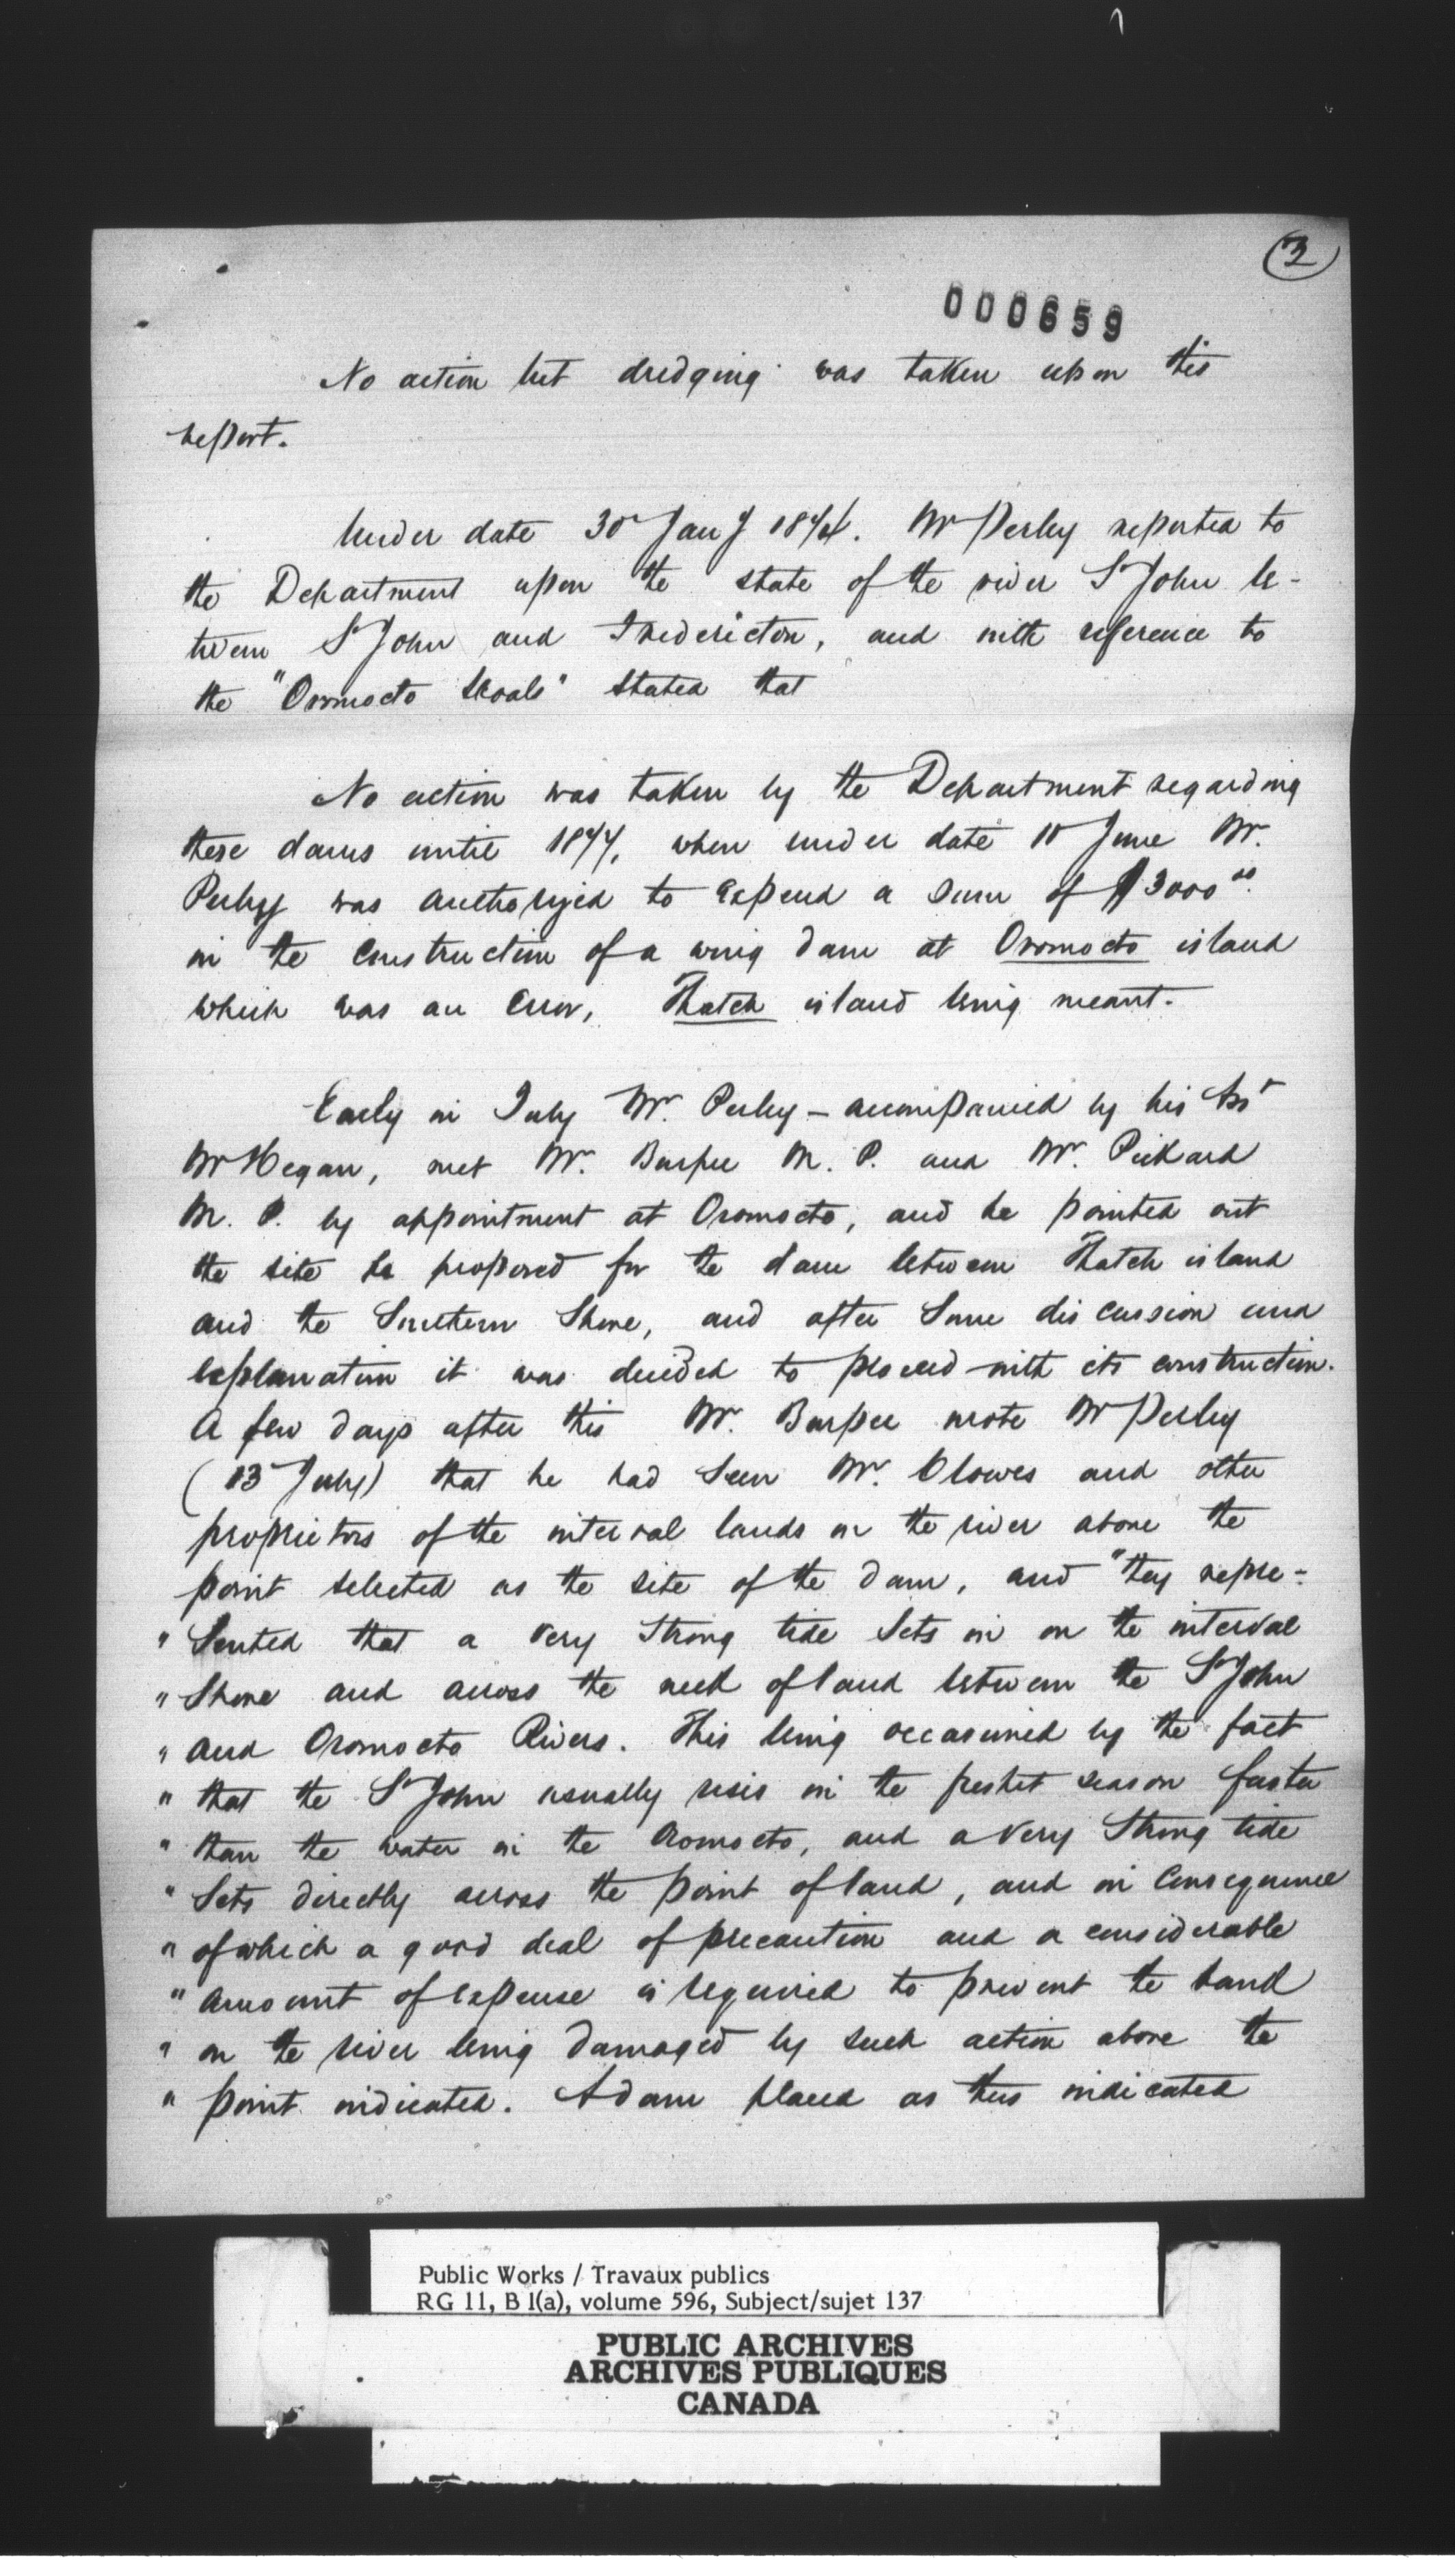 2
000659
No action but dredging was taken upon this
report.
Under date 30 Jany 1874. Mr Perley reported to
the Department upon the state of the river St John be-
tween St John and Fredericton, and with reference to
the "Oromocto Shoals" stated that
No action was taken by the Department regarding
these dams until 1877, when under date 18 June Mr.
Perley was authorized to expend a sum of $3000 00
in the construction of a wing dam at Oromocto island
which was an error, Thatch island being meant.
Early in July Mr. Perley - accompanied by his Asst
Mr Hegan, met Mr. Burpee M. P. and Mr. Pickard
M. P. by appointment at Oromocto, and he pointed out
the site he proposed for the dam between Thatch island
and the Southern Shore, and after some discussion and
explanation it was decided to proceed with its construction.
A few days after this Mr. Burpee wrote Mr Perley
(13 July) that he had seen Mr. Clowes and other
proprietors of the interval lands on the river above the
point selected as the site of the dam, and "they repre-
" sented that a very strong tide sets in on the interval
" Shore and across the neck of land between the St John
" and Oromocto Rivers. This being occasioned by the fact
" that the St John usually rises in the freshet season faster
" than the water in the Oromocto, and a very strong tide
" sets directly across the point of land, and in consequence
" of which a good deal of precaution and a considerable
" amount of expense is required to prevent the land
" on the river being damaged by such action above the
" point indicated. A dam placed as thus indicated
Public Works / Travaux publics
RG 11, B 1(a), volume 596, Subject/sujet 137
PUBLIC ARCHIVES
ARCHIVES PUBLIQUES
CANADA